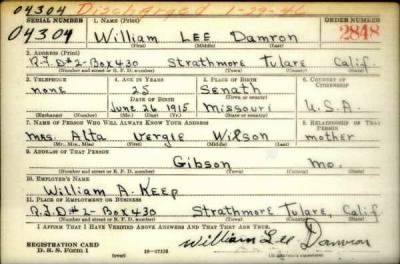 04304 Discharged 1-29-46
SERIAL NUMBER 1. NAME (Print) ORDER NUMBER
04304 William LEE Damron 2848
(First) (Middle) (Last)
2. ADDRESS (Print)
R.F.D#2-Box 430 Strathmore Tulare Calif.
(Number and street or R. F. D. number) (Town) (County) (State)
3. TELEPHONE 4. AGE IN YEARS 5. PLACE OF BIRTH 6. COUNTRY OF CITIZENSHIP
none 25 Senath
DATE OF BIRTH
June 26 1915 Missouri U.S.A.
(Exchange) (Number) (Mo.) (Day) (Yr.) (State or country)
7. NAME OF PERSON WHO WILL ALWAYS KNOW YOUR ADDRESS 8. RELATIONSHIP OF THAT PERSON
mrs. Alta Vergie Wilson mother
(Mr., Mrs., Miss) (First) (Middle) (Last)
9. ADDRESS OF THAT PERSON
Gibson mo.
(Number and street or R. F. D. number) (Town) (County) (State)
10. EMPLOYER'S NAME
William A. Keep
11. PLACE OF EMPLOYMENT OR BUSINESS
R.F.D #2- Box 430 Strathmore Tulare, Calif
(Number and street or R. F. D. number) (Town) (County) (State)
I AFFIRM THAT I HAVE VERIFIED ABOVE ANSWERS AND THAT THEY ARE TRUE.
REGISTRATION CARD
D. S. S. Form 1 (over) 16-17105 William Lee Damron